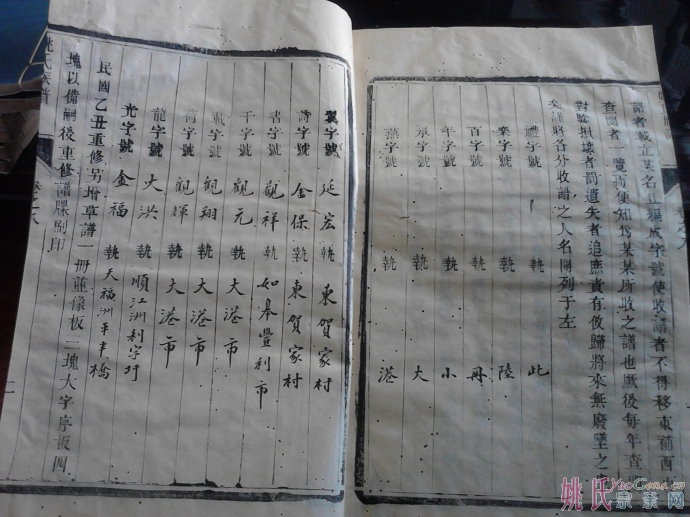 譜者載立某名且編成字號使收譜者不得移東補西
查閱者一覽而便知為某某所收之譜也厥後每年查
對驗損壞者罰遺失者追庶責有攸歸將來無廢墜之
矣謹將各分收譜之人名開列于左
禮字號 執 此
樂字號 執 陸
百字號 執 冊
年字號 執 小
承字號 執 大
葉字號 執 港
翼字號 延宏 執 東賀家村
詩字號 金保 執 東賀家村
書字號 觀祥 執 如皋豐利市
千字號 觀元 執 大港市
載字號 觀翔 執 大港市
荷字號 觀輝 執 大港市
龍字號 大洪 執 順江洲利字圩
光字號 金福 執 天福洲平中橋
民國乙丑重修另增草譜一冊並像板二塊大字序板四
塊以備嗣後重修譜牒刷印
姚氏族譜
卷之八
二
姚氏宗親网
YaoGens.cn